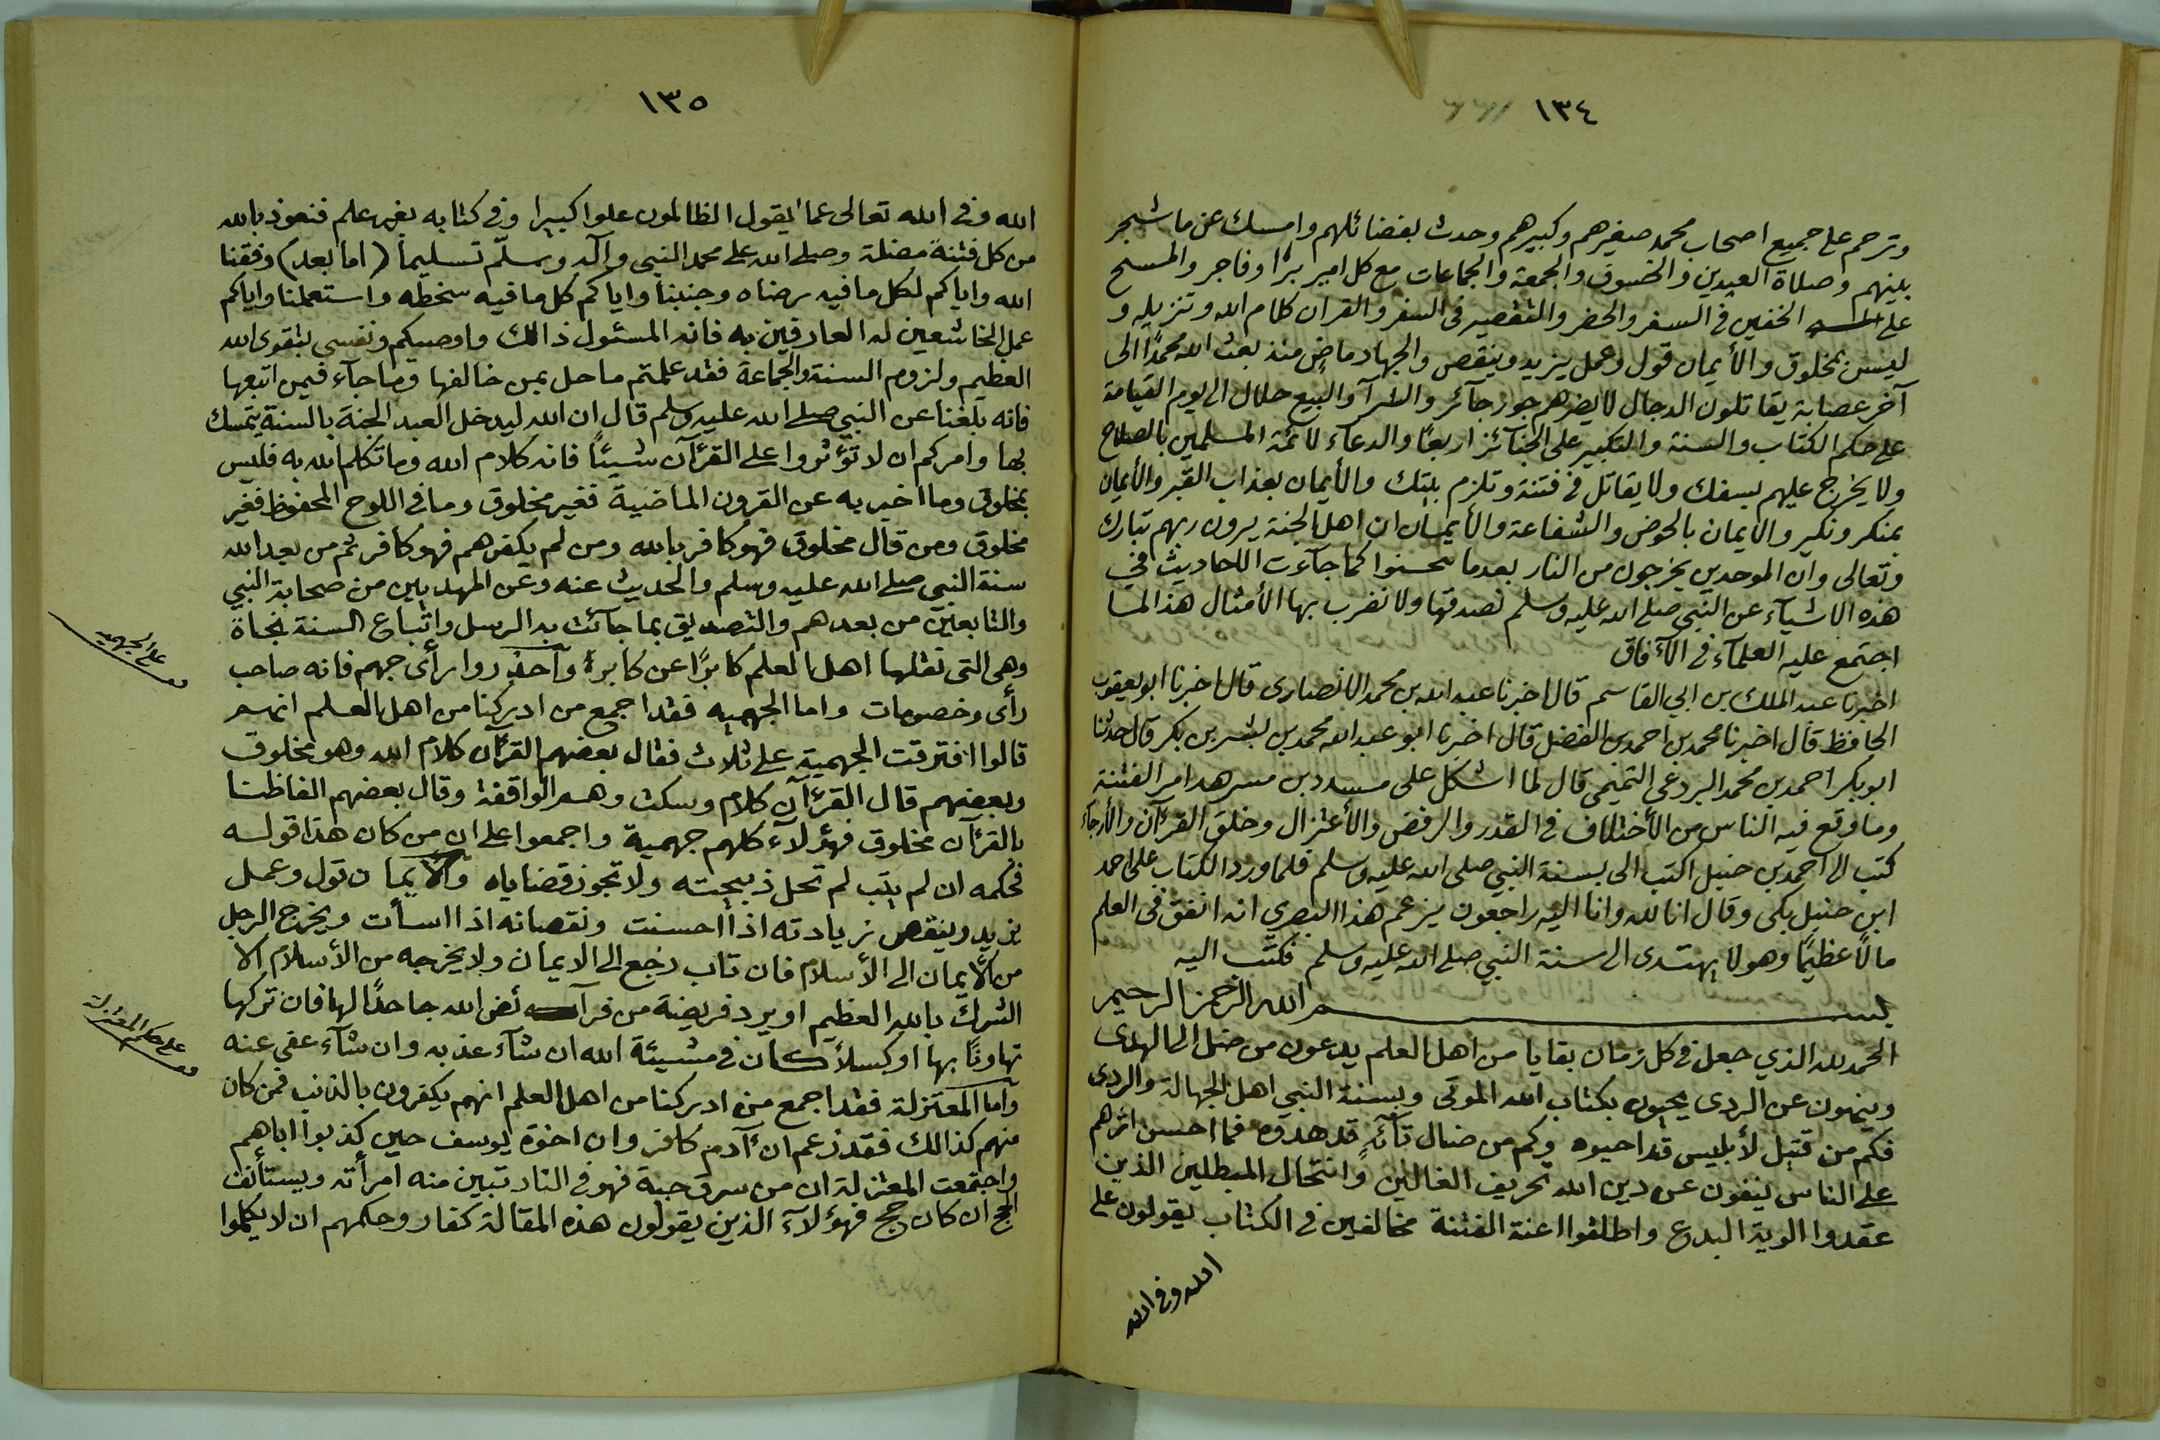 ١٣٤
وترحم على جميع اصحاب محمد صغيرهم وكبيرهم وحدث بفضائلهم وامسك عن ما شجر
بينهم وصلاة العيدين والخسوف والجمعة والجماعات مع كل امير برًا وفاجر والمسح
على الخفين في السفر والحضر والتقصير في السفر والقران كلام الله وتنزيله و
ليس بمخلوق والأيمان قول وعمل يزيد وينقص والجهاد ماضٍ منذ بعث الله محمدًا الى
آخر عصابة يقاتلون الدجال لا يضرهم جور جآئر والشرآ والبيع حلال الى يوم القيامة
على حكم الكتاب والسنة والتكبير على الجنآئز اربعًا والدعآء لائمة المسلمين بالصلاح
ولا يخرج عليهم بسفك ولا يقاتل في فتنة وتلزم بيتك والأيمان بعذاب القبر والأيمان
بمنكر ونكير والايمان بالحوض والشفاعة والأيمان ان اهل الجنة يرون ربهم تبارك
وتعالى وان الموحدين يخرجون من النار بعدما يمحسنوا كما جآءت الاحاديث في
هذه الاشيآء عن النبي صلى الله عليه وسلم نصدقها ولا نضرب بها الأمثال هذا لما
اجتمع عليه العلمآء في الآفاق
اخبرنا عبد الملك بن ابي القاسم قال اخبرنا عبد الله بن محمد الانصارى قال اخبرنا ابو يعقوب
الحافظ قال اخبرنا محمد بن احمد بن الفضل قال اخبرنا ابو عبد الله محمد بن بشر بن بكر قال حدثنا
ابو بكر احمد بن محمد البردعى التميمى قال لما اشكل على مسدد بن مسرهد امر الفتنة
وما وقع فيه الناس من الأختلاف في القدر والرفض والأعتزال وخلق القرءآن والأرجآء
كتب الى احمد بن حنبل اكتب الى بسنة النبي صلى الله عليه وسلم فلما ورد الكتاب على احمد
ابن حنبل بكى وقال انا لله وانا اليه راجعون يزعم هذا البصري انه انفق في العلم
مالًا عظيمًا وهو لا يهتدى الى سنة النبي صلى الله عليه وسلم فكتب اليه
بسم الله الرحمن الرحيم
الحمد لله الذي جعل في كل زمان بقايا من اهل العلم يدعون من ضل الى الهدى
وينهون عن الردى يحيون بكتاب الله الموتى وبسنة النبي اهل الجهالة والردى
فكم من قتيل لأبليس قد احيوه وكم من ضال تآئهٍ قد هدوه فما احسن اثرهم
على الناس ينفون عن دين الله تحريف الغالين وانتحال المبطلين الذين
عقدوا الوية البدع واطلقوا اعنة الفتنة مخالفين في الكتاب يقولون على
الله وفي الله
١٣٥
الله وفي الله تعالى عما يقول الظالمون علوا كبيرا وفي كتابه بغير علم فنعوذ بالله
من كل فتنة مضلة وصلى الله على محمد النبي وآله وسلّم تسليما (اما بعد) وفقنا
الله واياكم لكل ما فيه رضاه وجنبنا واياكم كل ما فيه سخطه واستعملنا واياكم
عمل الخاشعين له العارفين به فانه المسئول ذالك واوصيكم ونفسي بتقوى الله
العظيم ولزوم السنة والجماعة فقد علمتم ما حل بمن خالفها وما جآء فيمن اتبعها
فانه بلغنا عن النبي صلى الله عليه وسلم قال ان الله ليدخل العبد الجنة بالسنة يتمسك
بها وامركم ان لا تؤثروا على القرءآن شيئًا فانه كلام الله وما تكلم الله به فليس
بمخلوق وما اخبر به عن القرون الماضية فغير مخلوق وما في اللوح المحفوظ فغير
مخلوق ومن قال مخلوق فهو كافر بالله ومن لم يكفرهم فهو كافر ثم من بعد الله
سنة النبي صلى الله عليه وسلم والحديث عنه وعن المهديين من صحابة النبي
والتابعين من بعدهم والتصديق بما جآئت به الرسل واتباع السنة نجاة
وهي التي نقلها اهل العلم كابرًا عن كابر وآحذروا رأى جهم فانه صاحب
رأى وخصومات واما الجهميه فقد اجمع من ادركنا من اهل العلم انهم
قالوا افترقت الجهمية على ثلاث فقال بعضهم القرآن كلام الله وهو مخلوق
وبعضهم قال القرءآن كلام وسكت وهم الواقفة وقال بعضهم الفاظنا
بالقرءآن مخلوق فهؤلآء كلهم جهمية واجمعوا على ان من كان هذا قوله
فحكمه ان لم يتب لم تحل ذبيحته ولا تجوز قضاياه والايمان قول وعمل
يزيد وينقص زيادته اذا احسنت ونقصانه اذا اسأت ويخرج الرجل
من الأيمان الى الأسلام فان تاب رجع الى الايمان ولا يخرجه من الأسلام الا
الشرك بالله العظيم او يرد فريضة من فرآئض الله جاحدًا لها فان تركها
تهاونًا بها او كسلًا كان في مشيئة الله ان شآء عذبه وان شآء عفى عنه
وآما المعتزلة فقد اجمع من ادركنا من اهل العلم انهم يكفرون بالذنب فمن كان
منهم كذالك فقد زعم ان آدم كافر وان اخوة يوسف حين كذبوا اباهم
واجتمعت المعتزلة ان من سرق حبة فهو في النار تبين منه امرأته ويستأنف
الحج ان كان حج فهؤلآء الذين يقولون هذه المقالة كفار وحكمهم ان لا يكلموا
على الجهميه
على حكم المعتزلة